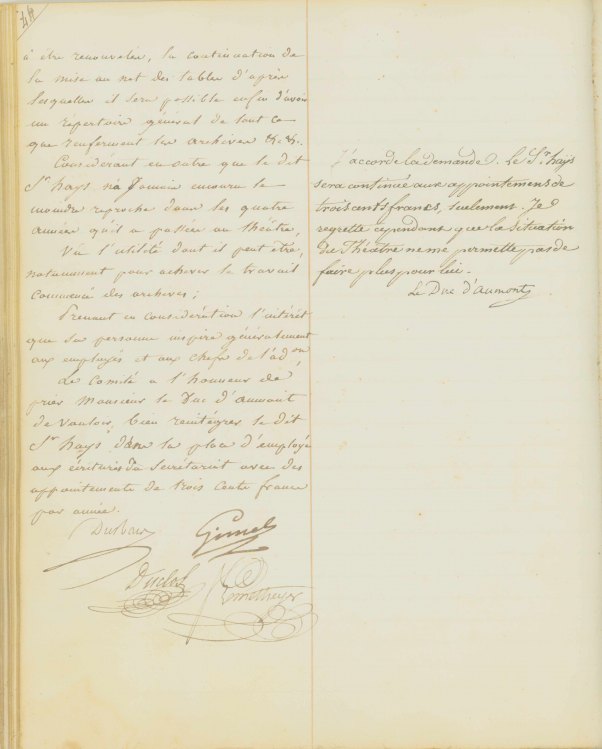 à être renouveler, la continuation de
la mise au net des tables d'après
lesquelles il sera possible enfin d'avoir
un répertoire général de tout ce
que renferment les archives &c &c.
Considérant en outre que le dit
Sr hays n'a jamais encouru le
moindre reproche dans les quatre
années qu'il a passées au théâtre,
Vu l'utilité dont il peut être,
notamment pour achever le travail
commencé des archives;
Prenant en considération l'intérêt
que sa personne inspire généralement
aux employés et aux chefs de l'adon,
Le Comité a l'honneur de
prier Monsieur le Duc d'aumont
de vouloir bien réintégrer le dit
Sr hays dans la place d'employé
aux écritures du Secrétariat avec des
appointements de trois cents francs
par année.
Gimel
Duclos
J'accorde la demande. Le Sr. hays
sera continué aux appointemens de
trois cents francs, seulement. Je
regrette cependant que la situation
du Théâtre ne me permette pas de
faire plus pour lui.
Le Duc d'Aumont